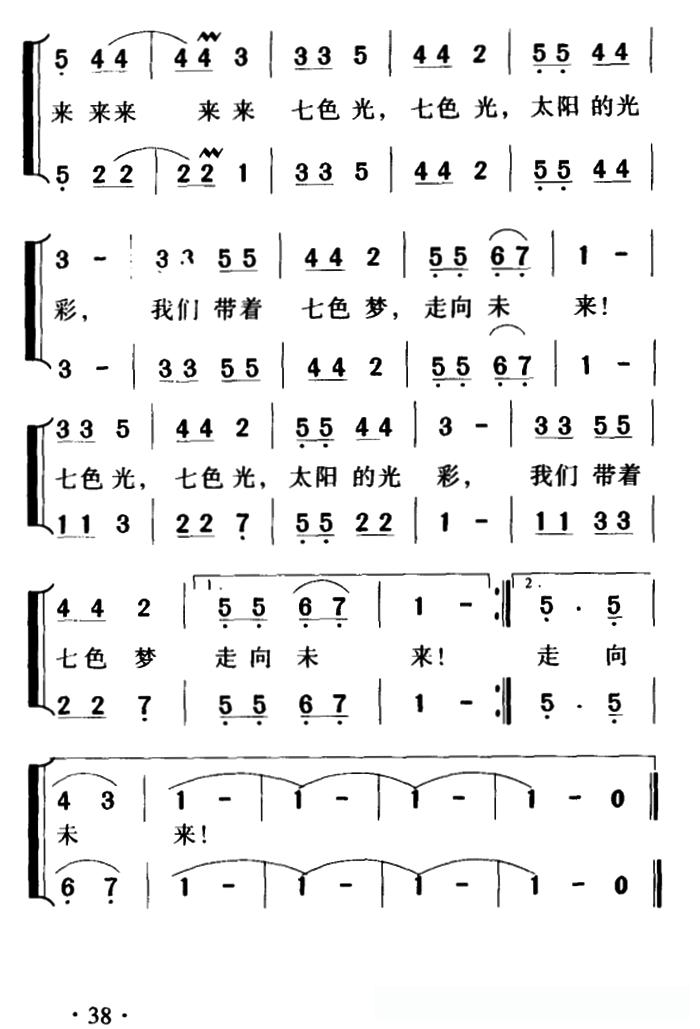 5 44 | 44 3 | 33 5 | 44 2 | 55 44 |
来 来来 来 来 七色 光， 七色 光， 太阳 的光
5 22 | 22 1 | 33 5 | 44 2 | 55 44 |
3 - | 33 55 | 44 2 | 55 67 | 1 - |
彩， 我们 带着 七色 梦， 走向 未 来！
3 - | 33 55 | 44 2 | 55 67 | 1 - |
33 5 | 44 2 | 55 44 | 3 - | 33 55 |
七色 光， 七色 光， 太阳 的光 彩， 我们 带着
11 3 | 22 7 | 55 22 | 1 - | 11 33 |
1. 2.
44 2 | 55 67 | 1 - :‖ 5 . 5 |
七色 梦 走向 未 来！ 走 向
22 7 | 55 67 | 1 - :‖ 5 . 5 |
4 3 | 1 - | 1 - | 1 - | 1 - 0 ‖
未 来！
6 7 | 1 - | 1 - | 1 - | 1 - 0 ‖
· 38 ·